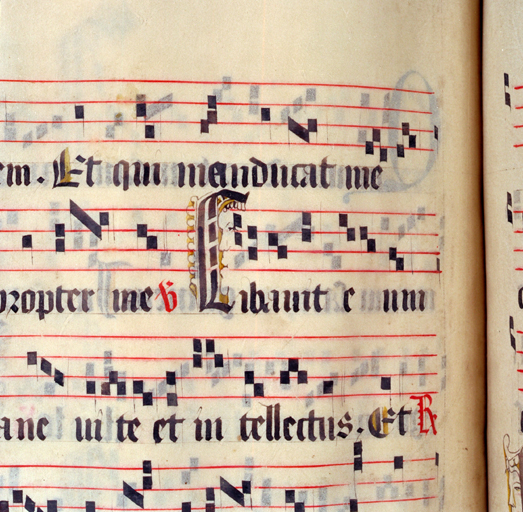 em. Et qui manducat me
propter me ℣ Cibauit e um
ane ui te et in tellectus. Et ℟